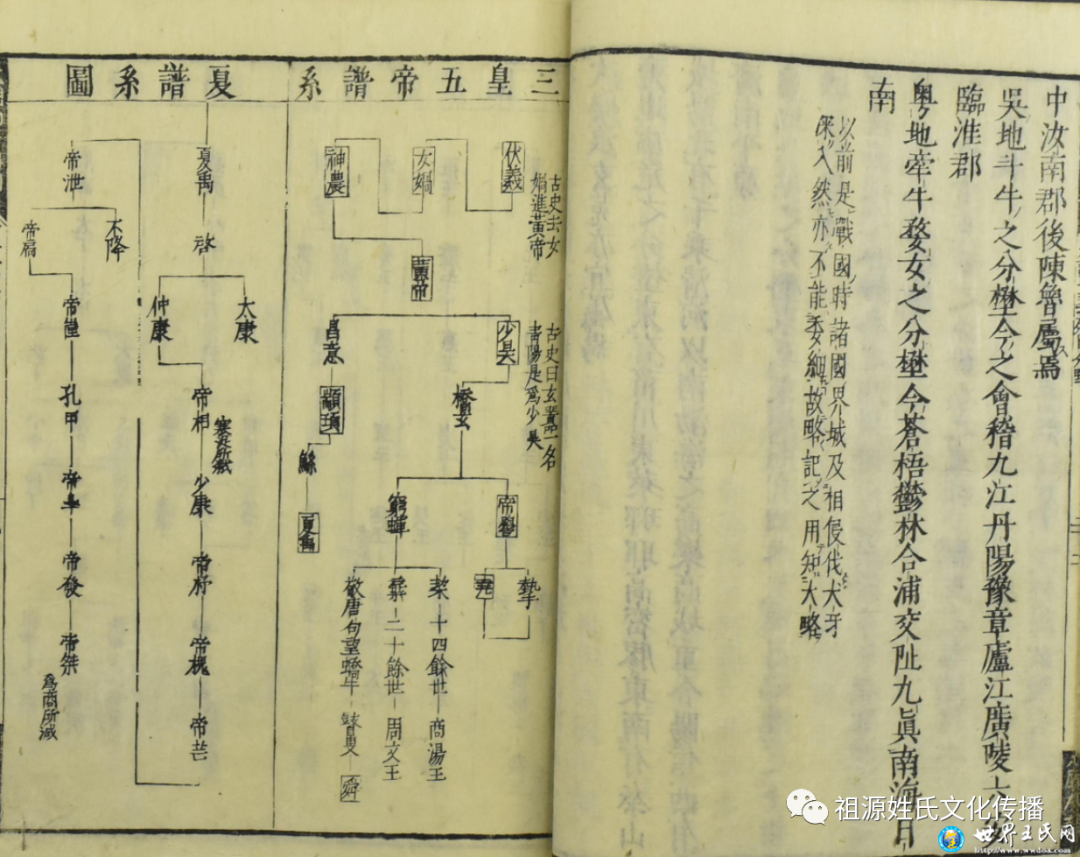 中汝南郡後陳魯屬焉
吳地斗牛之分壄今之會稽九江丹陽豫章廬江廣陵六安
臨淮郡
粵地牽牛婺女之分壄今蒼梧鬱林合浦交阯九眞南海日
南
以前是戰國時諸國界城及相侵伐犬牙
深入然亦不能委細故略記之用知大略
三皇五帝譜系
古史去女
媧進黃帝
伏羲
女媧
神農
黃帝
古史曰玄囂一名
青陽是爲少昊
少昊
昌意
蟜玄
顓頊
鯀
夏禹
帝嚳
窮蟬
摯
堯
契 十四餘世 商湯王
棄 二十餘世 周文王
敬康句望蟜牛 瞽叟 舜
夏譜系圖
夏禹
啓
太康
仲康
帝相
寒浞所弒
少康
帝杼
帝槐
帝芒
帝泄
不降
帝扃
帝廑
孔甲
帝皋
帝發
帝桀
爲商所滅
祖源姓氏文化传播
世界王氏网